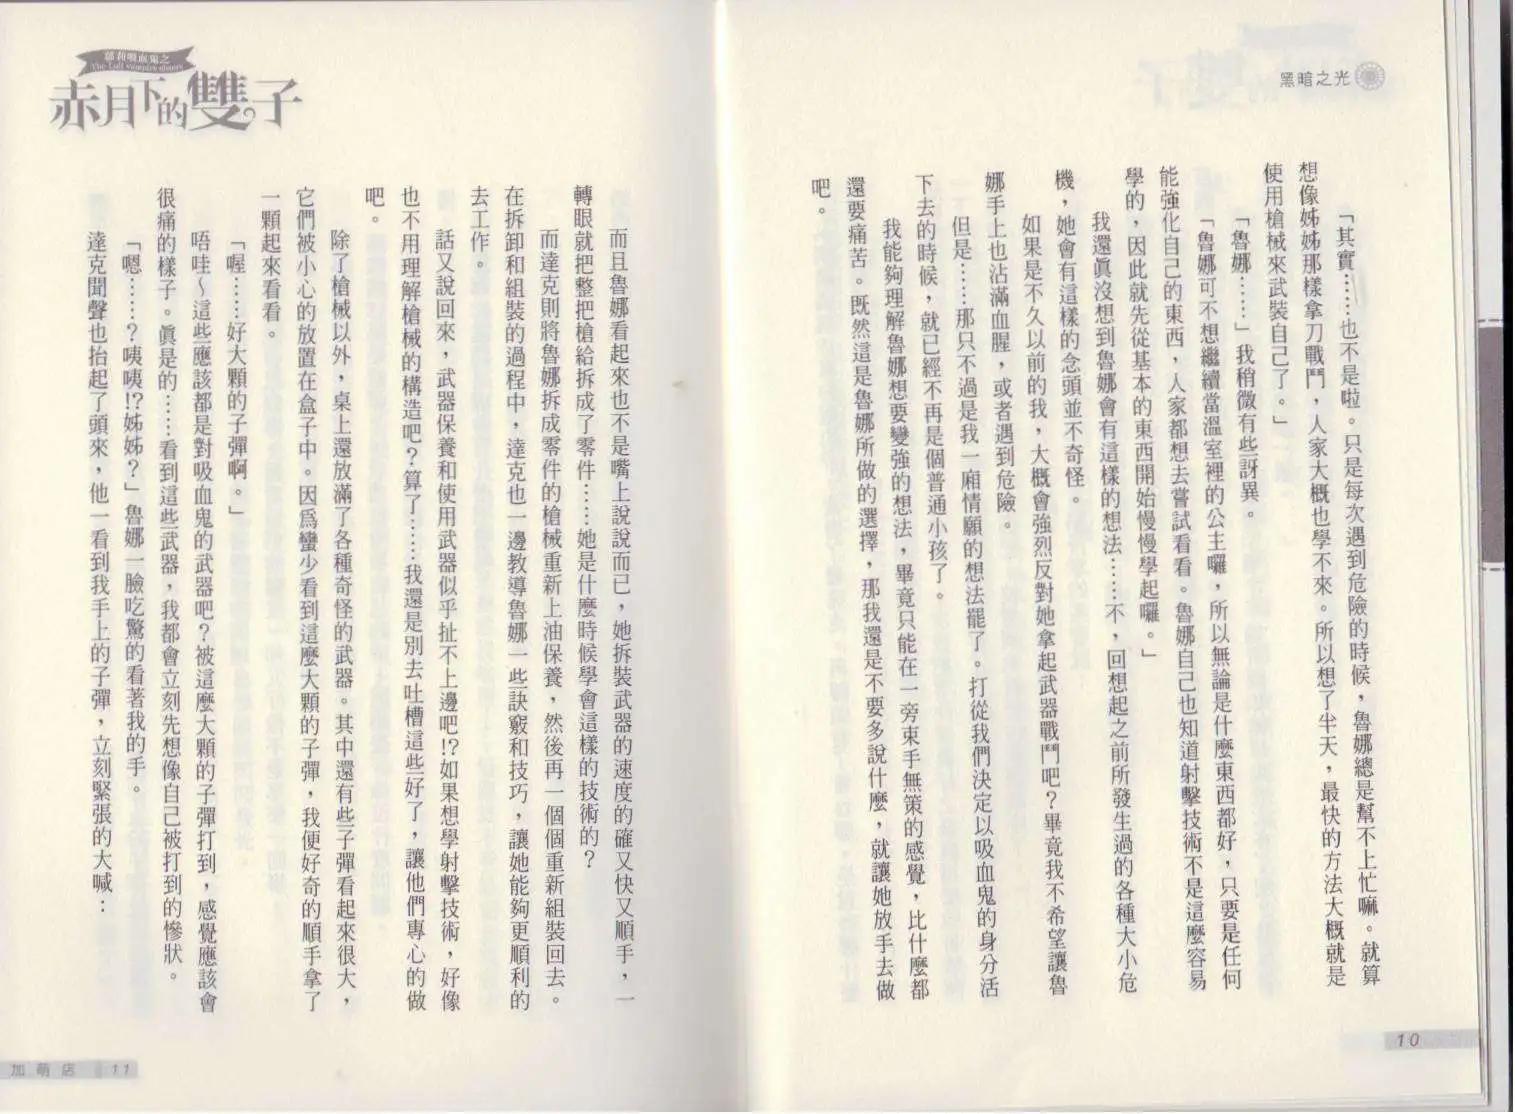 黑暗之光
「其實……也不是啦。只是每次遇到危險的時候，魯娜總是幫不上忙嘛。就算
想像姊姊那樣拿刀戰鬥，人家大概也學不來。所以想了半天，最快的方法大概就是
使用槍械來武裝自己了。」
「魯娜……」我稍微有些訝異。
「魯娜可不想繼續當溫室裡的公主囉，所以無論是什麼東西都好，只要是任何
能強化自己的東西，人家都想去嘗試看看。魯娜自己也知道射擊技術不是這麼容易
學的，因此就先從基本的東西開始慢慢學起囉。」
我還真沒想到魯娜會有這樣的想法……不，回想起之前所發生過的各種大小危
機，她會有這樣的念頭並不奇怪。
如果是不久以前的我，大概會強烈反對她拿起武器戰鬥吧？畢竟我不希望讓魯
娜手上也沾滿血腥，或者遇到危險。
但是……那只不過是我一廂情願的想法罷了。打從我們決定以吸血鬼的身分活
下去的時候，就已經不再是個普通小孩了。
我能夠理解魯娜想要變強的想法，畢竟只能在一旁束手無策的感覺，比什麼都
還要痛苦。既然這是魯娜所做的選擇，那我還是不要多說什麼，就讓她放手去做
吧。
10
蘿莉吸血鬼之
赤月下的雙子
而且魯娜看起來也不是嘴上說說而已，她拆裝武器的速度的確又快又順手，一
轉眼就把整把槍給拆成了零件……她是什麼時候學會這樣的技術的？
而達克則將魯娜拆成零件的槍械重新上油保養，然後再一個個重新組裝回去。
在拆卸和組裝的過程中，達克也一邊教導魯娜一些訣竅和技巧，讓她能夠更順利的
去工作。
話又說回來，武器保養和使用武器似乎扯不上邊吧!?如果想學射擊技術，好像
也不用理解槍械的構造吧？算了……我還是別去吐槽這些好了，讓他們專心的做
吧。
除了槍械以外，桌上還放滿了各種奇怪的武器。其中還有些子彈看起來很大，
它們被小心的放置在盒子中。因為蠻少看到這麼大顆的子彈，我便好奇的順手拿了
一顆起來看看。
「喔……好大顆的子彈啊。」
唔哇～這些應該都是對吸血鬼的武器吧？被這麼大顆的子彈打到，感覺應該會
很痛的樣子。真是的……看到這些武器，我都會立刻先想像自己被打到的慘狀。
「嗯……？咦咦!?姊姊？」魯娜一臉吃驚的看著我的手。
達克聞聲也抬起了頭來，他一看到我手上的子彈，立刻緊張的大喊：
加萌店 11